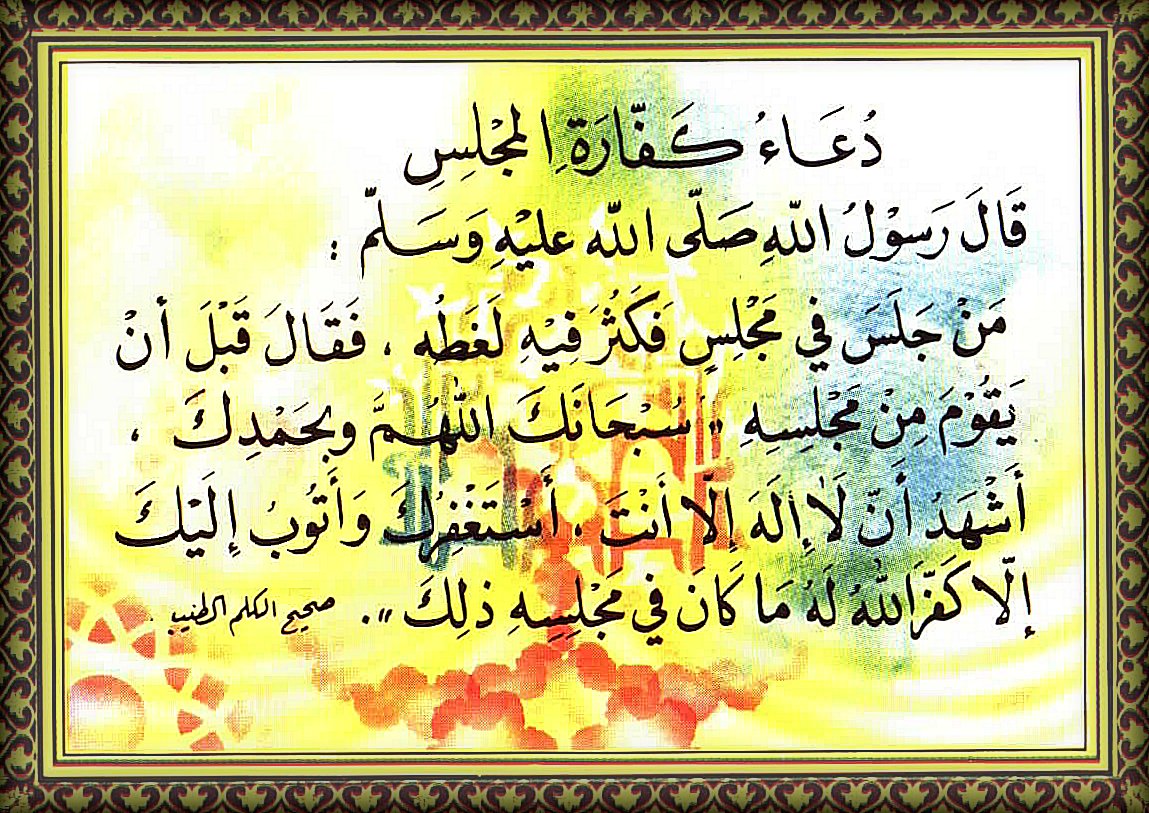 دُعَاءُ كَفَّارَةِ المَجْلِسِ
قَالَ رَسُوْلُ اللّهِ صَلَّى اللّه عليْهِ وَسَلّمّ :
مَنْ جَلَسَ في مَجْلِسٍ فَكَثُرَ فِيْهِ لَغَطُه ، فَقَالَ قَبْلَ أنْ
يَقُوْمَ مِنْ مَجْلِسِهِ « سُبْحَانَكَ اللّهُمَّ وبِحَمْدِكَ ،
أَشْهَدُ أَنّ لَا إِلَهَ إِلّا أَنْتَ ، أَسْتَغْفِرُكَ وَأَتُوبُ إِلَيْكَ
إِلّا كَفّرَ اللّهُ لَهُ مَا كَانَ فِي مَجْلِسِهِ ذلِكَ » . صحيح الكلم الطيب .